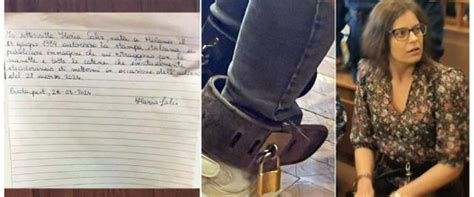 Io sottoscritta Ilaria Salis nata a Milano il
17 giugno 1984 autorizzo la stampa italiana a
pubblicare immagini che mi ritraggono con le
manette e tutte le catene che eventualmente
decideranno di mettermi in occasione dell'udienza
del 28 marzo 2024.
Budapest, 28-03-2024
Ilaria Salis